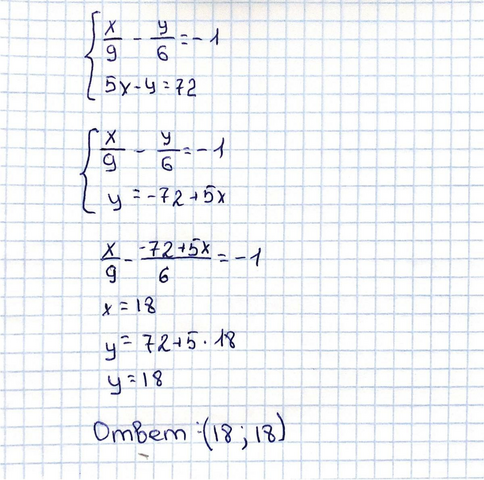 { x/9 - y/6 = -1
5x - y = 72
{ x/9 - y/6 = -1
y = -72 + 5x
x/9 - (-72+5x)/6 = -1
x = 18
y = 72 + 5 · 18
y = 18
Ответ: (18; 18)